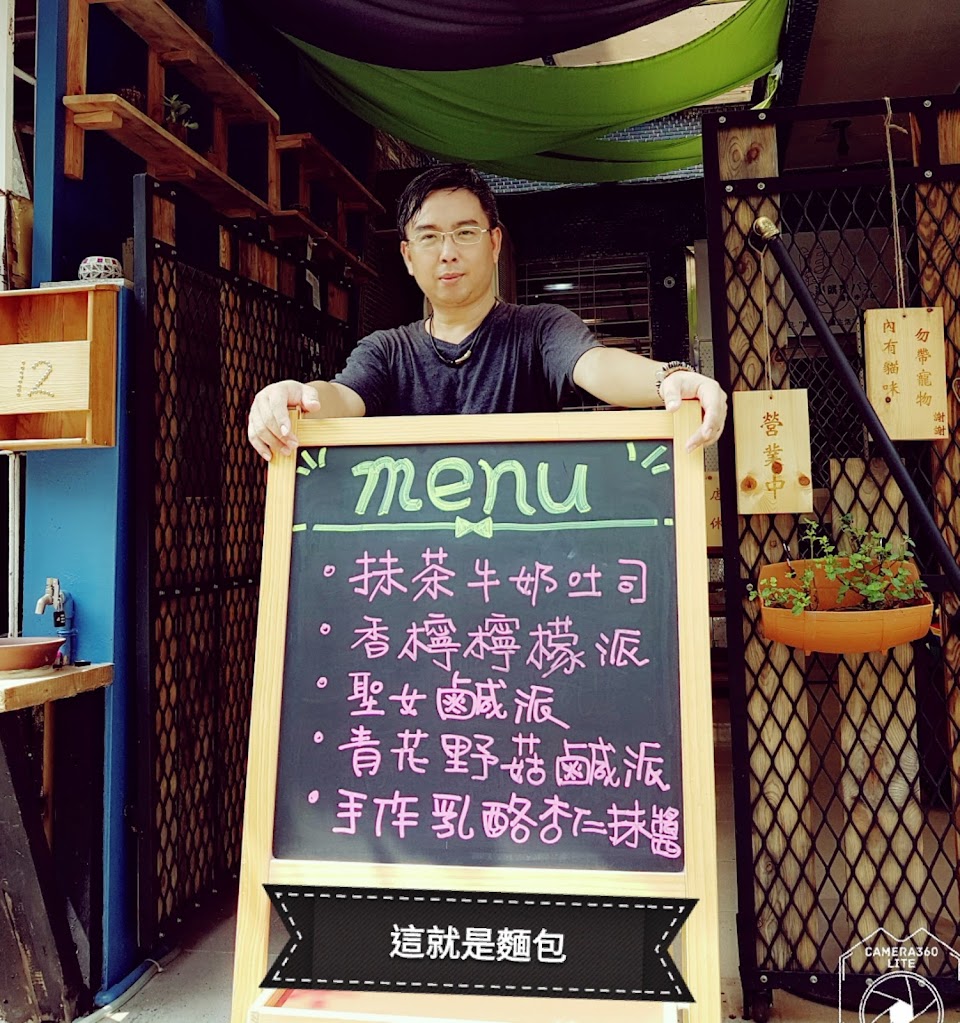 menu
抹茶牛奶吐司
香檸檸檬派
聖女鹹派
青花野菇鹹派
手作乳酪杏仁抹醬
這就是麵包
12
營業中
勿帶寵物
內有貓咪
謝謝
店休
CAMERA360
LITE